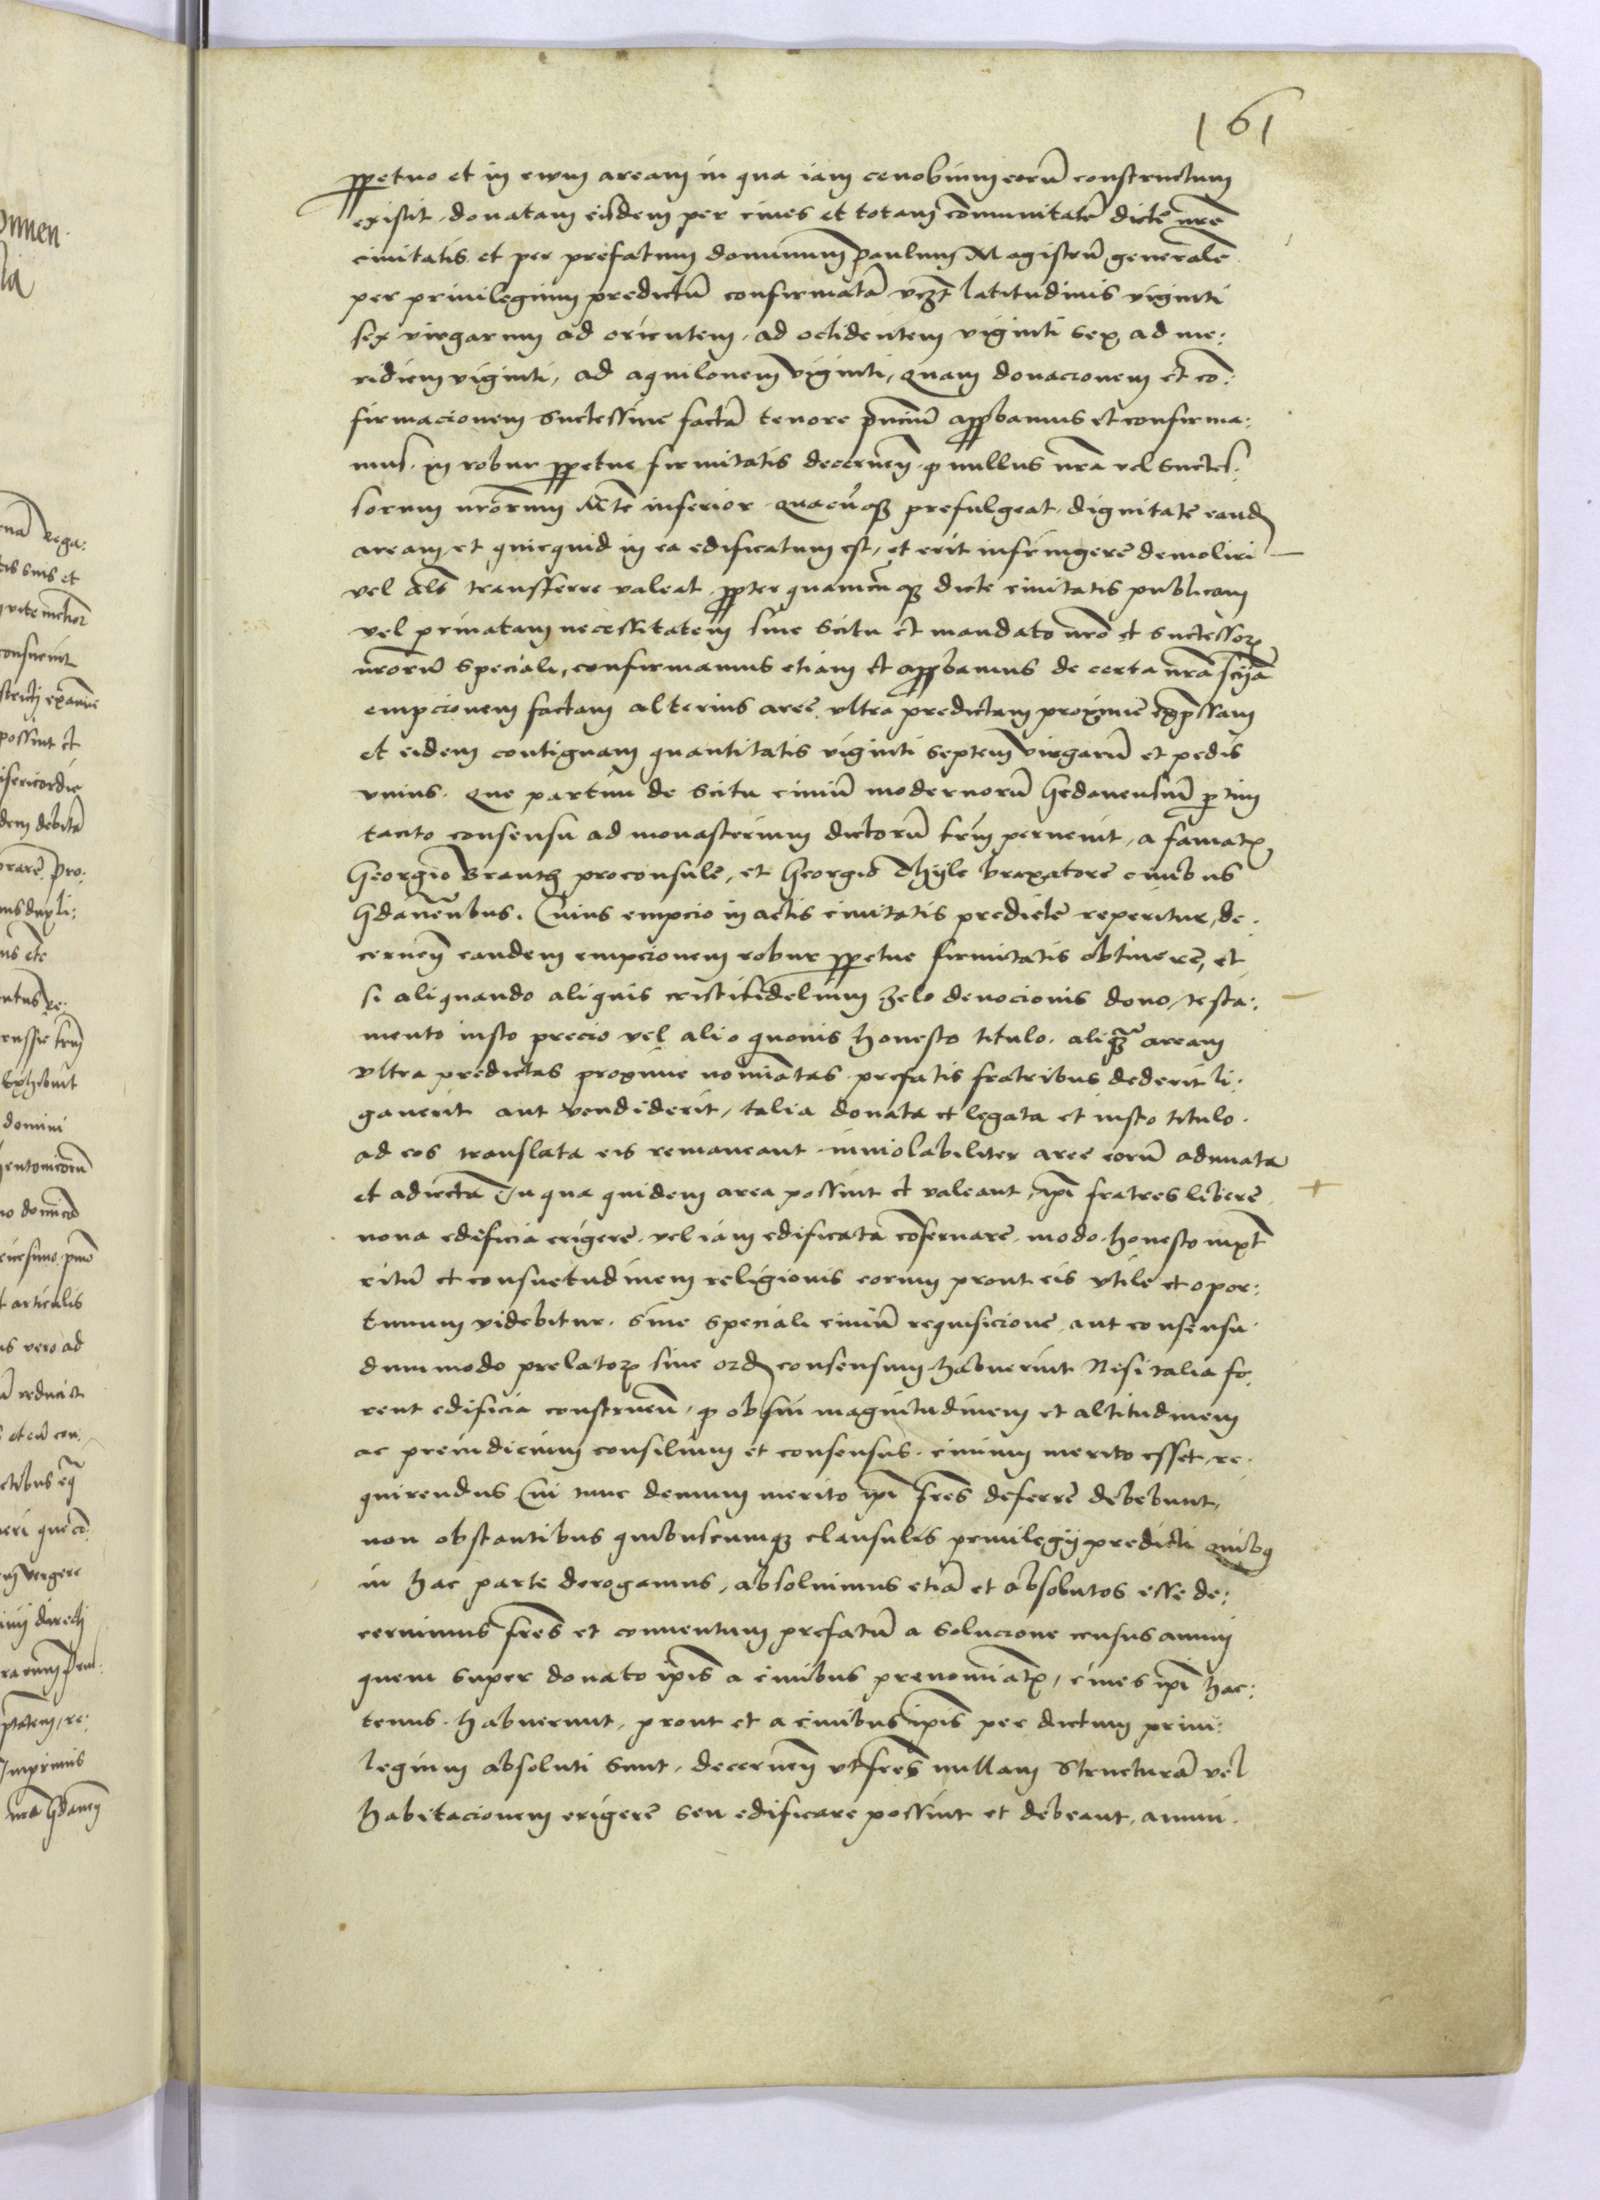 161
ppetuo et in ewm aream in qua iam cenobium eoru constructum
existit donatam eisdem per ciues et totam comunitate dicte nre
ciuitatis et per prefatum dominum paulum Magistru generale
per priuilegium predictu confirmata vczt latitudinis viginti
sex virgarum ad orientem, ad occidentem viginti sex, ad me:
ridiem viginti, ad aquilonem viginti, quam donacionem et co:
firmacionem successiue facta tenore pncium appbamus et confirma:
mus. in robur ppetue firmitatis decernen. q nullus nra vel succes:
sorum nrorum Acte inferior quacuq prefulgeat dignitate eand
aream, et quicquid in ea edificatum est, et erit infringere demoliri
vel als transferre valeat, ppter quamcuq dicte ciuitatis publicam
vel priuatam necessitatem sine scitu et mandato nro et successor
nroru speciali, confirmamus etiam et appbamus de certa nra scija
empcionem factam alterius aree vltra predictam proxime expssam
et eidem contiguam quantitatis viginti septem virgaru et pedis
vnius. Que partim de scitu ciuiu modernoru Gedanensiu ptim
tacito consensu ad monasterium dictoru frm peruenit, a famat
Georgio Brantz proconsule, et Georgio Thyle braxatore ciuibus
Gdanensibus. Cuius empcio in actis ciuitatis predicte reperitur, de:
cernen eandem empcionem robur ppetue firmitatis obtinere, et
si aliquando aliquis cristifidelium zelo deuocionis dono, testa:
mento iusto precio vel alio quouis honesto titulo. aliqua aream
vltra predictas proxime nominatas prefatis fratribus dederit li:
gauerit aut vendiderit, talia donata et legata et iusto titulo.
ad eos translata eis remaneant inuiolabiliter aree eoru adunata
et adiecta In qua quidem area possint et valeant, ipi fratres libere
noua edificia erigere. vel iam edificata conseruare. modo honesto iuxt
ritu et consuetudinem religionis eorum prout eis vtile et opor:
tunum videbitur. sine speciali ciuiu requisicione aut consensu
dummodo prelator siue ord consensum habuerint Nisi talia fo:
rent edificia construen, q ob sui magnitudinem et altitudinem
ac preiudicium consilium et consensus ciuium merito esset, re:
quirendus Cui tunc demum merito ipi fres deferre debebunt,
non obstantibus quibuscumq clausulis priuilegij predicti quibq
in hac parte derogamus, absoluimus etia et absolutos esse de:
cernimus fres et conuentum prefatu a solucione census annui
quem super donato ipis a ciuibus prenominat, ciues ipi hac:
tenus. habuerunt, prout et a ciuibus ipis per dictum priui:
legium absoluti sunt, decernen vt fres nullam structura vel
habitacionem erigere seu edificare possint et debeant, amni.